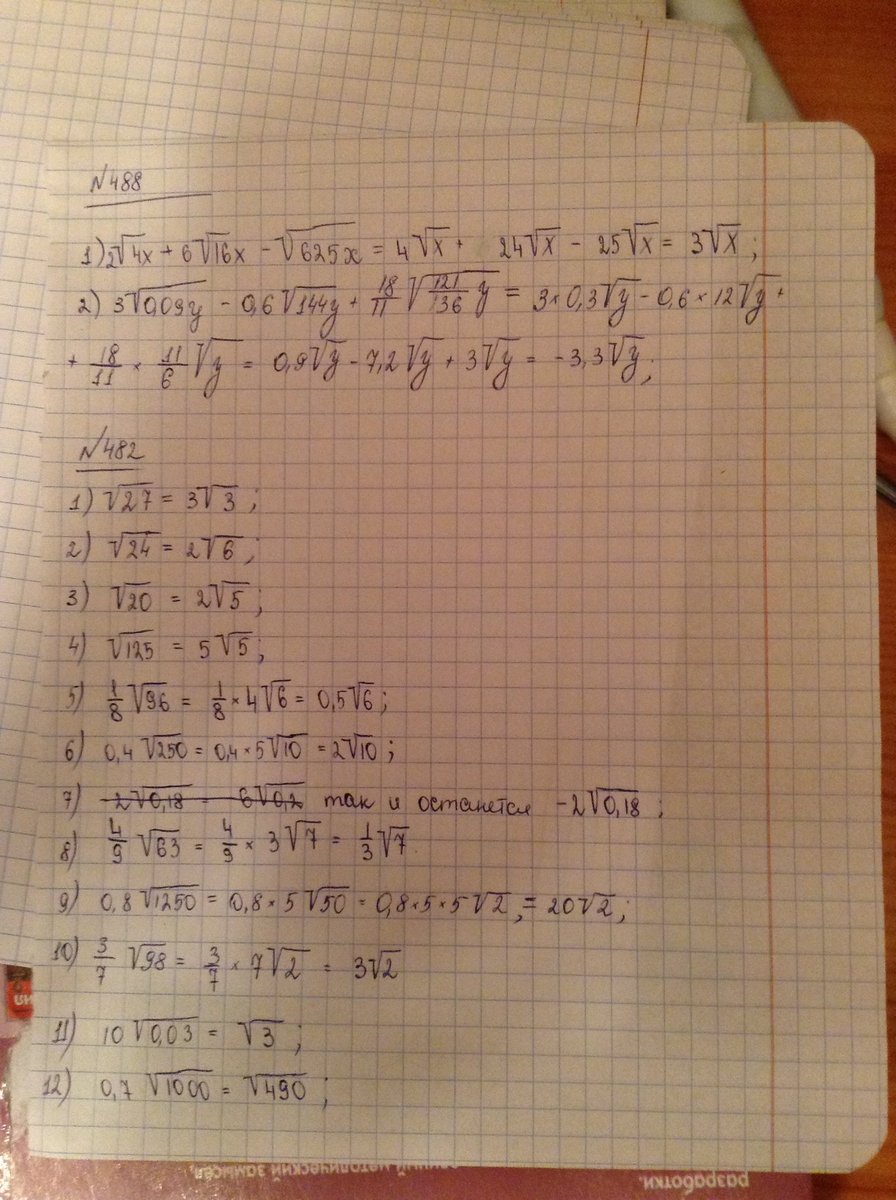 №488
1) 2√4x + 6√16x - √625x = 4√x + 24√x - 25√x = 3√x ;
2) 3√0,09y - 0,6√144y + 18/11 √121/36 y = 3×0,3√y - 0,6×12√y +
+ 18/11 × 11/6 √y = 0,9√y - 7,2√y + 3√y = -3,3√y ;
№482
1) √27 = 3√3 ;
2) √24 = 2√6 ;
3) √20 = 2√5 ;
4) √125 = 5√5 ;
5) 1/8 √96 = 1/8 × 4√6 = 0,5√6 ;
6) 0,4√250 = 0,4×5√10 = 2√10 ;
7) -2√0,18 = -6√0,2 так и останется -2√0,18 ;
8) 4/9 √63 = 4/9 × 3√7 = 1/3 √7.
9) 0,8√1250 = 0,8×5√50 = 0,8×5×5√2 ,= 20√2 ;
10) 3/7 √98 = 3/7 × 7√2 = 3√2
11) 10√0,03 = √3 ;
12) 0,7√1000 = √490 ;
методический замысел,
разработки.